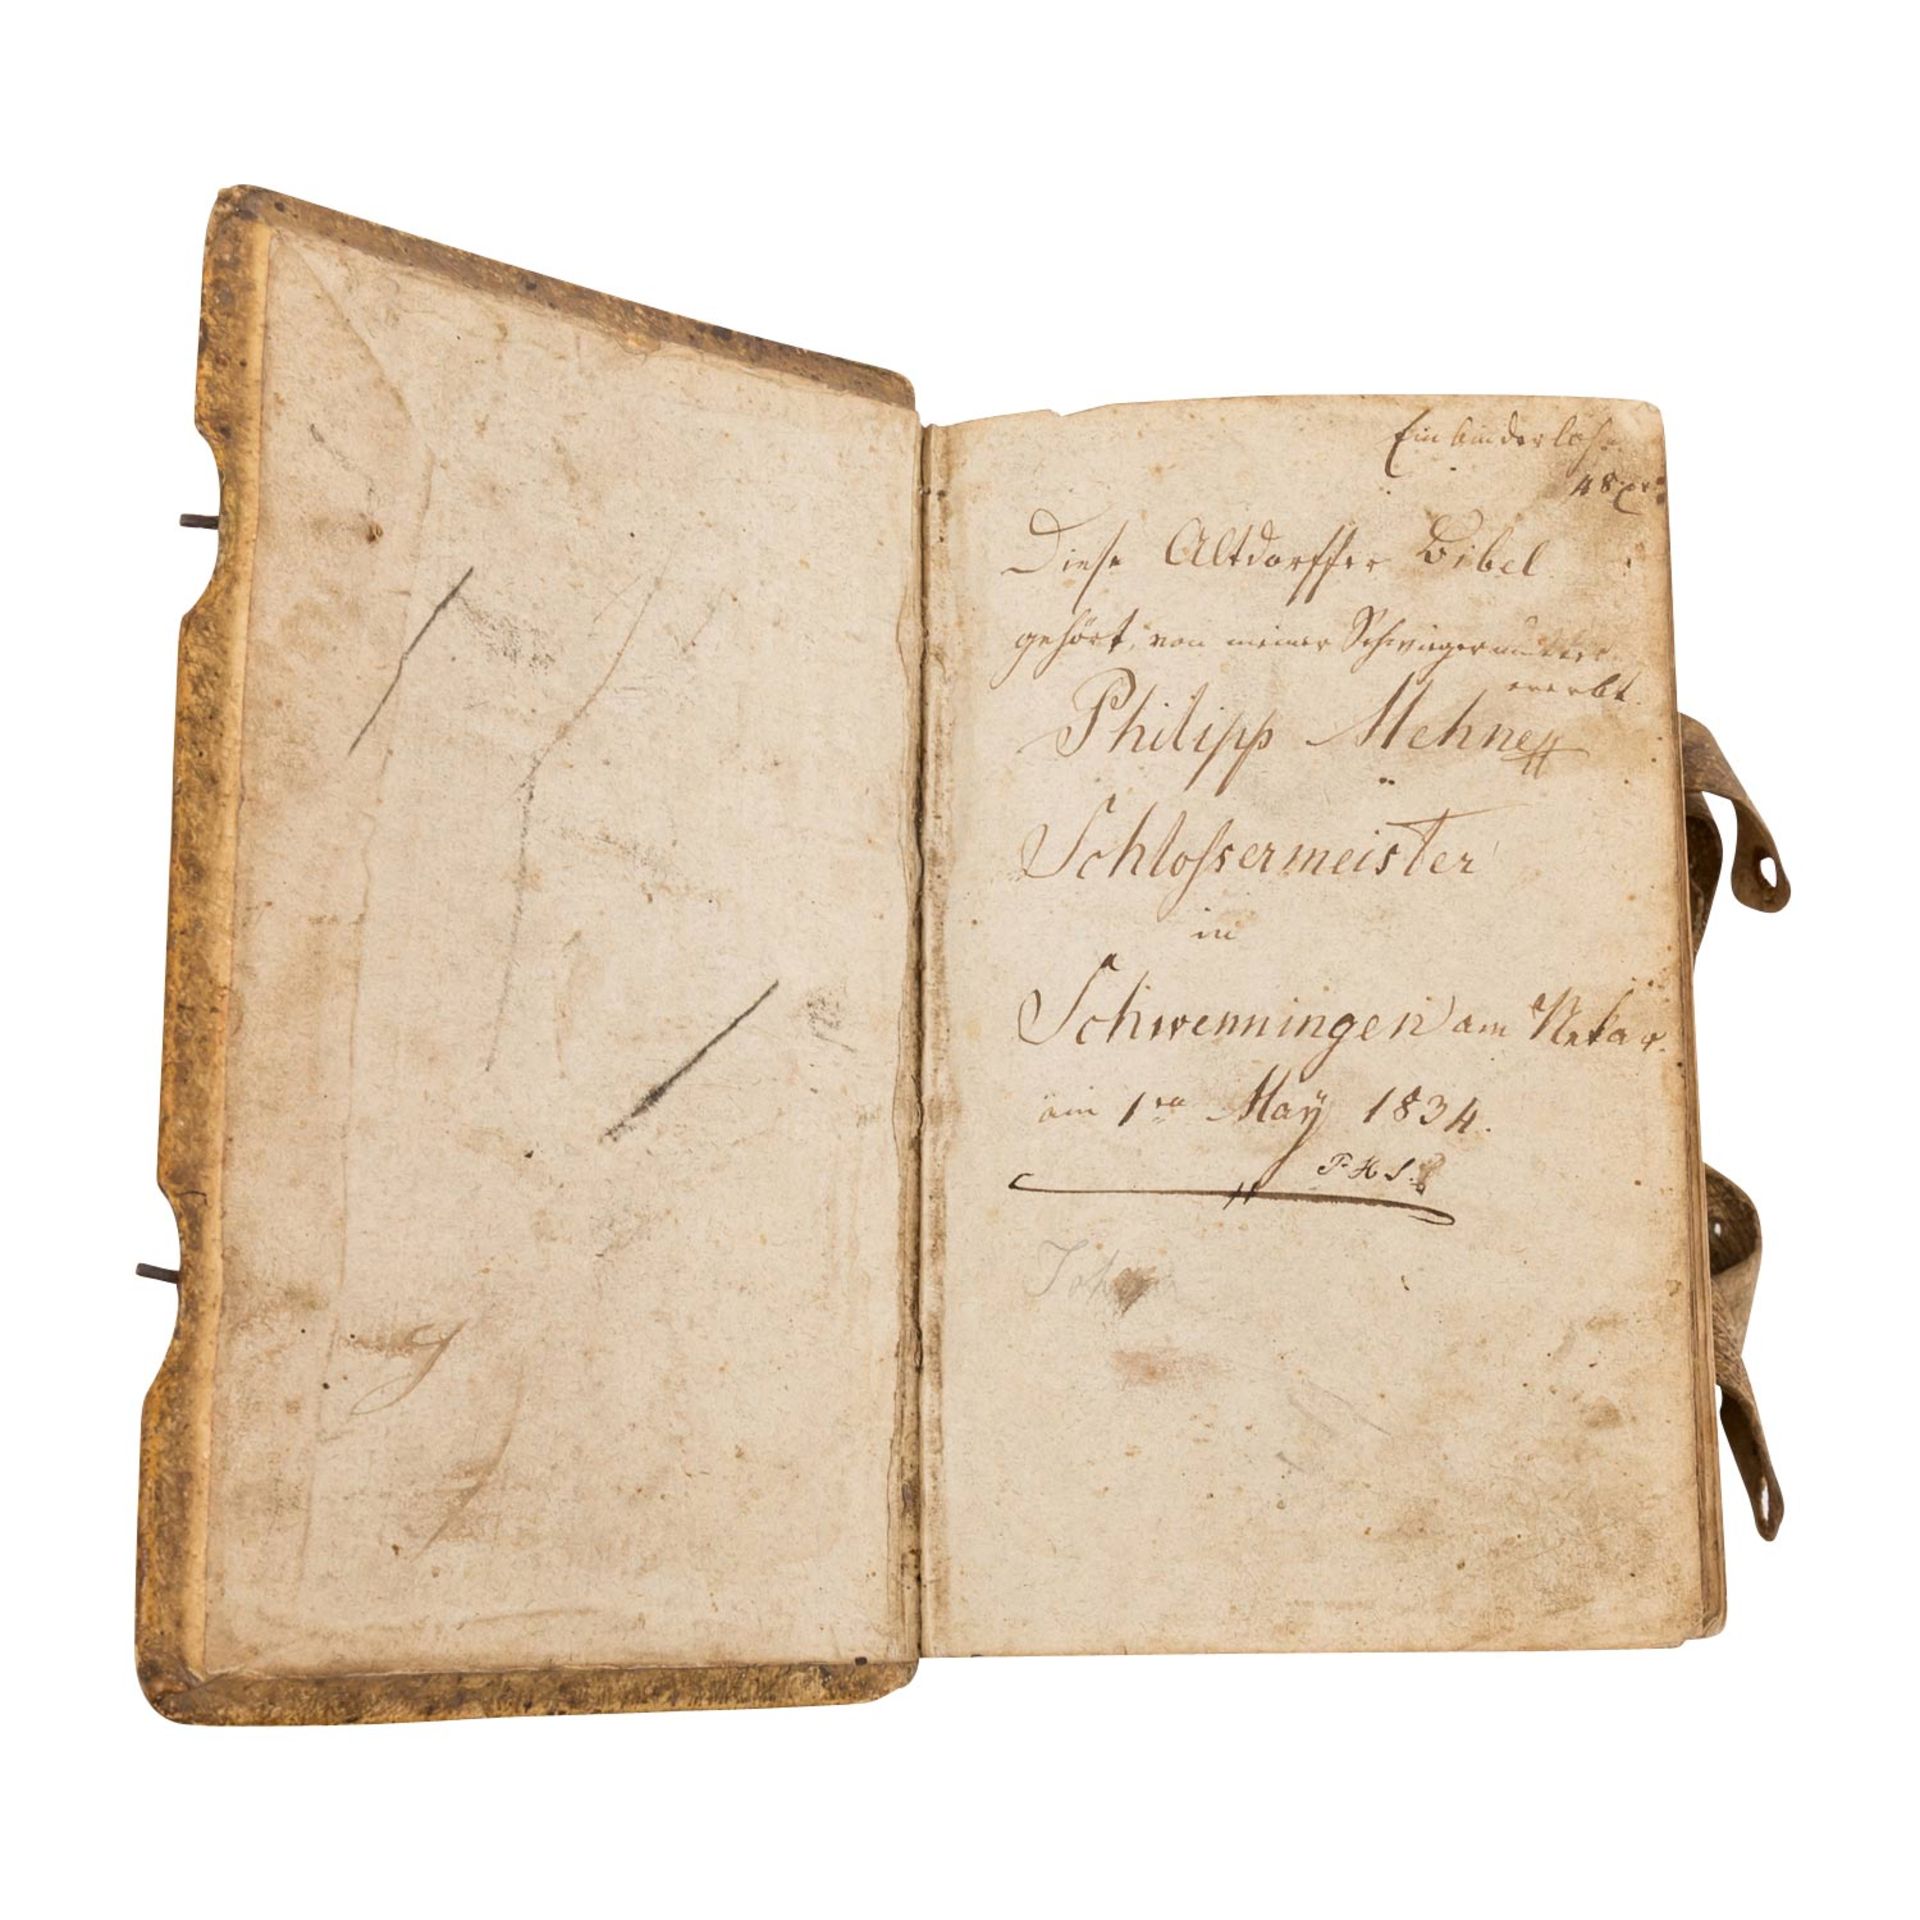 Einbinderlohn
48 xr
Diese Altdorffer Bibel
gehört, von meiner Schwiegermutter
ererbt
Philipp Mehne
Schlossermeister
in
Schwenningen am Nekar.
am 1ten May 1834.
Johann